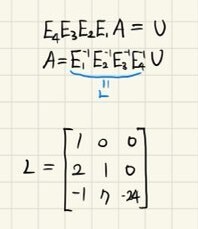 E₄E₃E₂E₁A = U
A = E₁⁻¹E₂⁻¹E₃⁻¹E₄⁻¹U
L
L = [1 0 0
2 1 0
-1 7 -24]